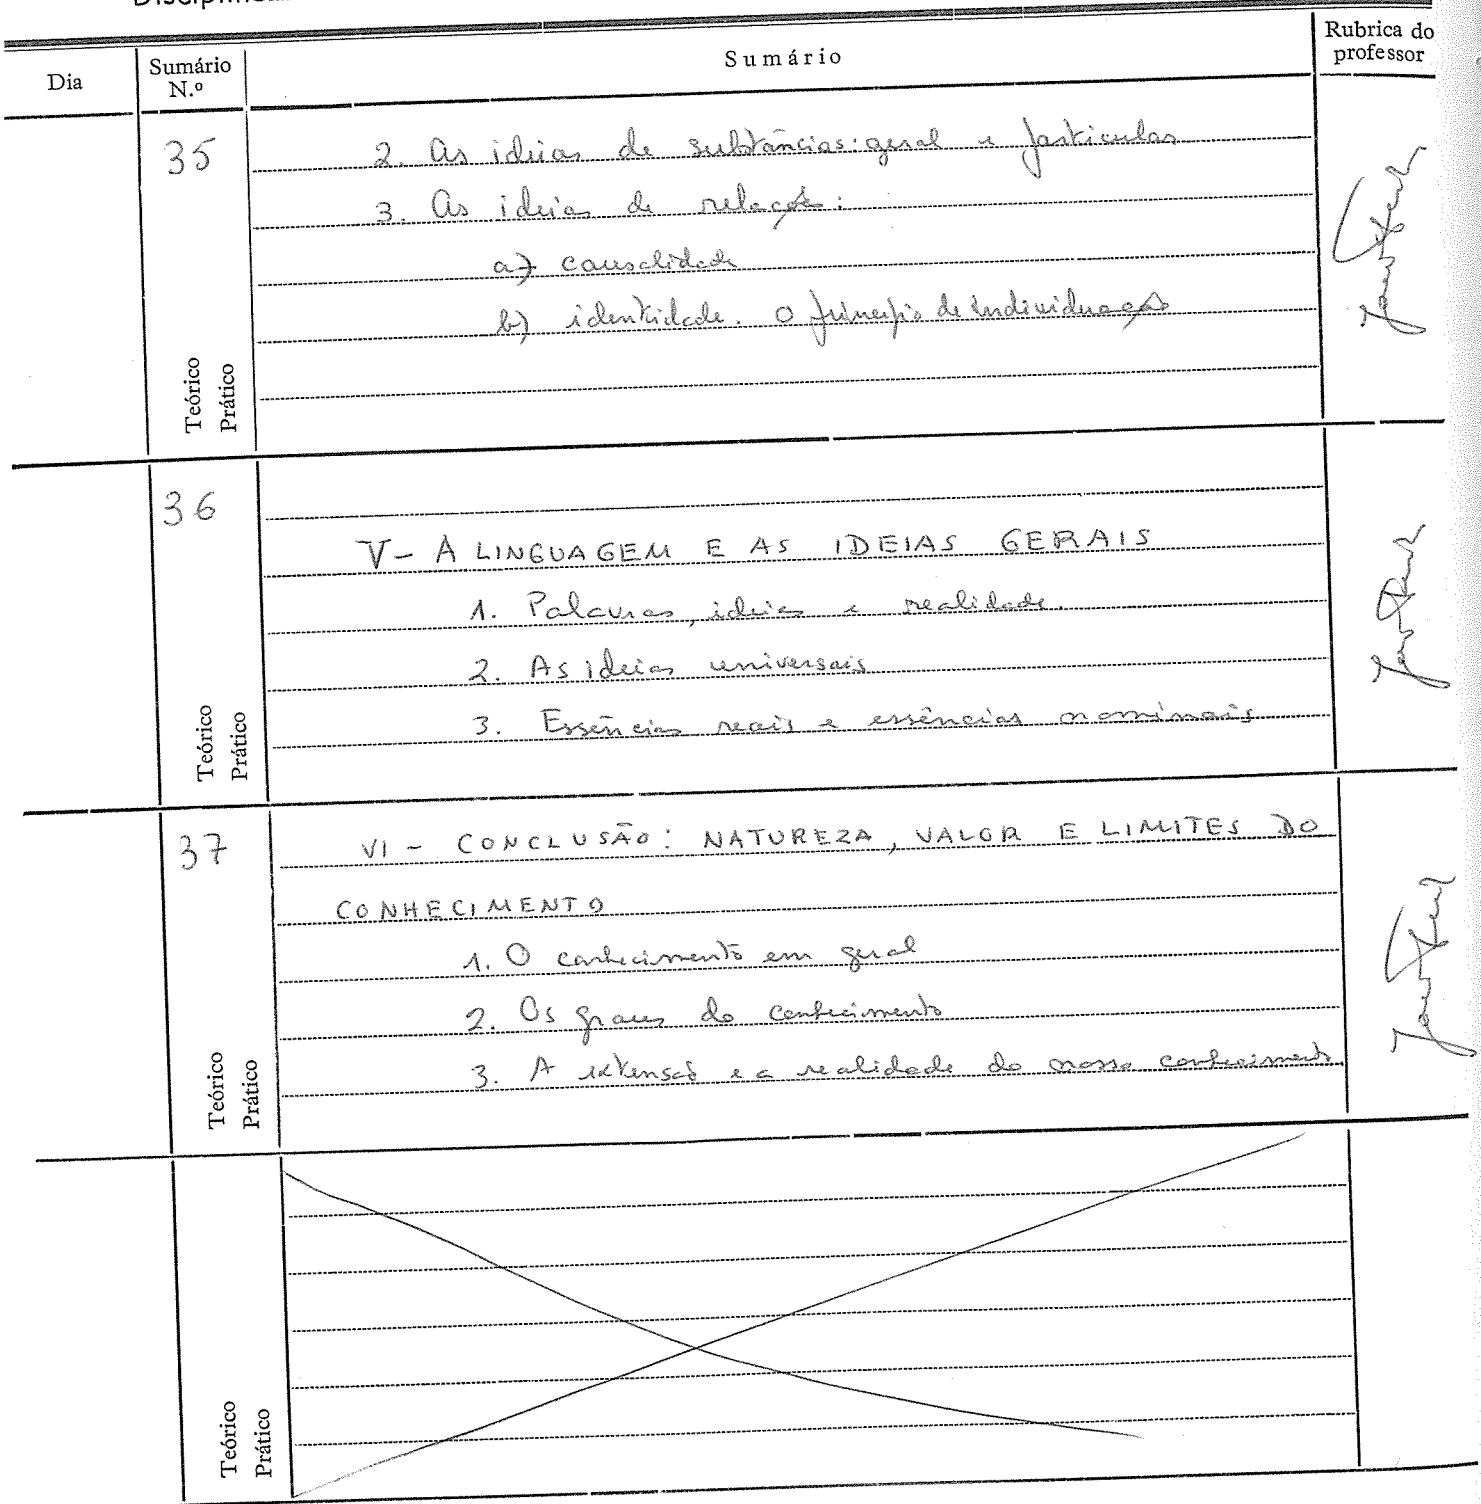 Dia
Sumário N.º
Sumário
Rubrica do professor
35
2. As ideias de substâncias: geral e particular
3. As ideias de relação:
a) causalidade
b) identidade. O princípio de individuação
Teórico
Prático
36
V - A LINGUAGEM E AS IDEIAS GERAIS
1. Palavras, ideias e realidade.
2. As ideias universais
3. Essências reais e essências nominais
Teórico
Prático
37
VI - CONCLUSÃO: NATUREZA, VALOR E LIMITES DO
CONHECIMENTO
1. O conhecimento em geral
2. Os graus do conhecimento
3. A extensão e a realidade do nosso conhecimento
Teórico
Prático
Teórico
Prático